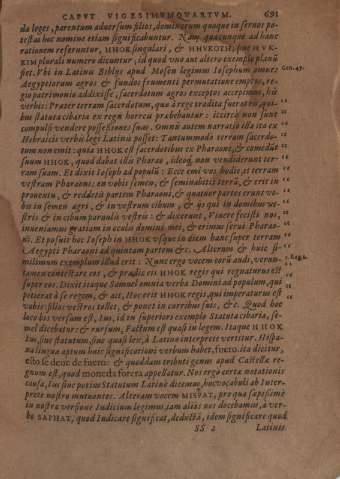 CAPVT VIGESIMVMQVARTVM. 691
da loges, parentum aduersum filios, dominorum quoque in seruos po-
testas hoc nomine etiam significabuntur. Nam quacunque ad hanc
rationem referuntur, HHOK singulari, & HHVKOTH, siue HVK-
KIM plurali numero dicuntur; id quod vno aut altero exemplo planū
fiet. Vbi in Latinis Biblys apud Mosen legimus Iosephum omnes
Gen. 47.
Aegyptiorum agros & fundos frumenti permutatione empto, re-
gio patrimonio addixisse, sacerdotum agros exceptos accepimus, his
verbis: Prater terram sacerdotum, qua à rege tradita fuerat eis, qui-
bus statuta cibaria ex regÿs horreis præbebantur: idcirco non sunt
compulsi vendere possessiones suas. Omnis autem narratio illa ita ex
Hebraicis verbis legi Latinis posset: Tantummodo terram sacerdo-
tum non emit: quia HHOK est sacerdotibus ex Pharaone, & comedūt
suum HHOK, quod dabat illis Pharao, ideoq́. non vendiderunt ter-
ram suam. Et dixit Ioseph ad populū: Ecce emi vos hodie, et terram
vestram Pharaoni: en vobis semen, & seminabitis terrā, & erit in
prouentu, & reddetis partem Pharaoni, & quatuor partes erunt vo-
bis in semen agri, & in vestrum cibum, & ÿs qui in domibus ve-
stris & in cibum paruulis vestris: & dixerunt, Viuere fecisti nos,
inueniamus gratiam in oculis domini mei, & erimus serui Pharao-
ni. Et posuit hoc Ioseph in HHOK vsque in diem hanc super terram
Aegypti Pharaoni ad quintam partem &c. Alterum & huic si-
millimum exemplum illud erit: Nunc ergo vocem eorū audi, verun-
1. Reg. 8.
tamen contestare eos, & prædic eis HHOK regis qui regnaturus est
super eos. Dixit itaque Samuel omnia verba Domini ad populum, qui
petierat à se regem, & ait, Hoc erit HHOK regis, qui imperaturus est
vobis: filios vestros tollet, & ponet in curribus suis, &c. Quod hoc
loco bis versum est, Ius, id in superiori exemplo Statuta cibaria, se-
mel dicebatur: & rursum, Factum est quasi in legem. Itaque HHOK
Ius, siue statutum, siue quasi lex, à Latino interprete vertitur. Hispa-
na lingua aptum huic significationi verbum habet, fuero. ita dicitur,
esto se deue de fuero: & quoddam tributi genus apud Castellæ re-
gnum est, quod moneda forera appellatur. Nos ergo certa notationis
causa, Ius siue potius Statutum Latinè dicemus, hoc vocabuli ab Inter-
prete nostro mutuantes. Alteram vocem MISPAT, pro qua sæpissimè
in nostra versione Iudicium legimus, iam alias nos docebamus, à ver-
bo SAPHAT, quod Iudicare significat, deductā, idem significare quod
SS 2 Latinis